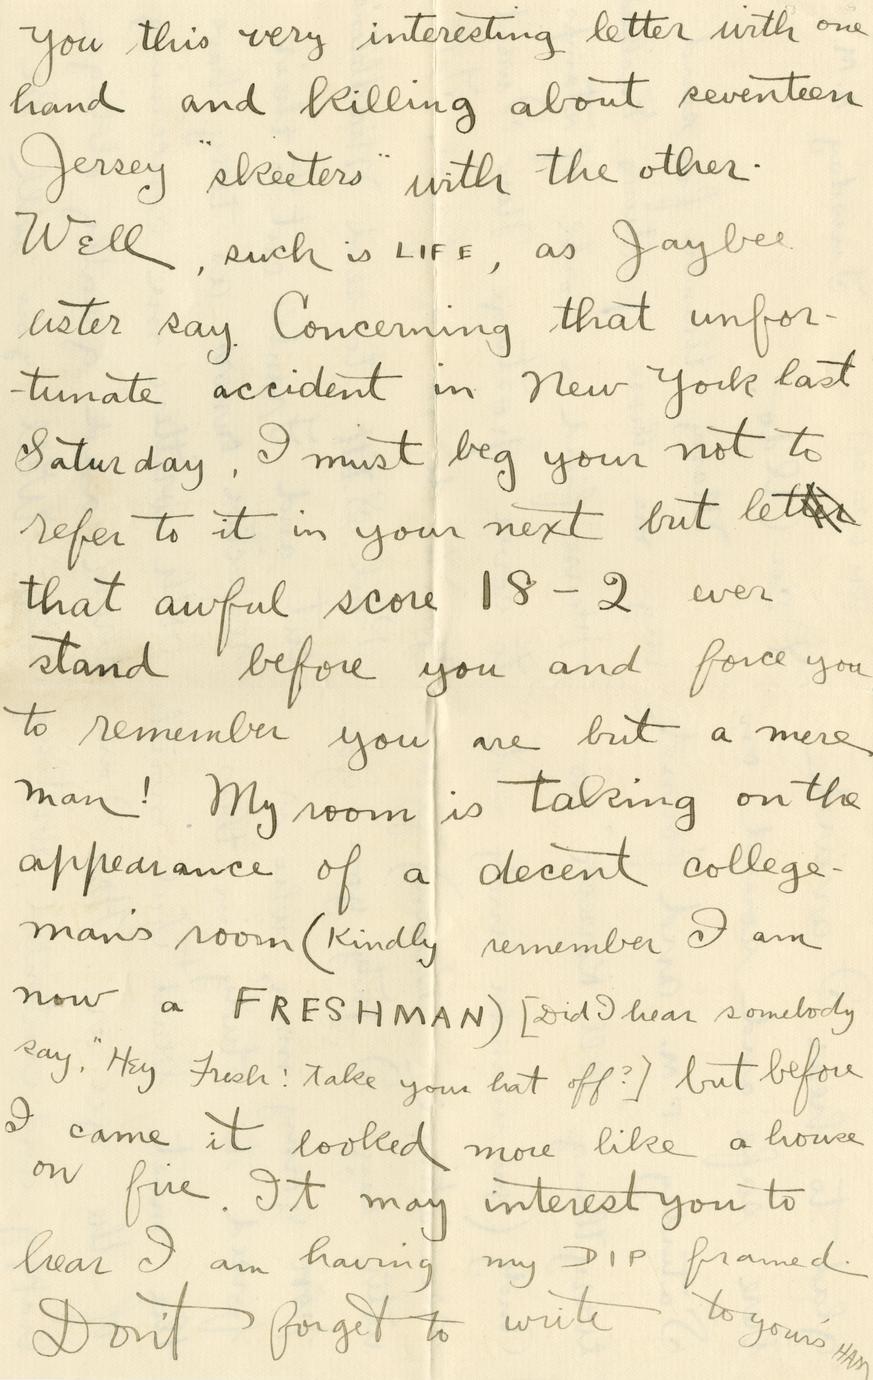 you this very interesting letter with one
hand and killing about seventeen
Jersey "skeeters" with the other.
Well, such is LIFE, as Jaybee
uster say. Concerning that unfor-
-tunate accident in New York last
Saturday, I must beg your not to
refer to it in your next but let
that awful score 18-2 ever
stand before you and force you
to remember you are but a mere
man! My room is taking on the
appearance of a decent college-
man's room (Kindly remember I am
now a FRESHMAN) [Did I hear somebody
say, "Hey Fresh! take your hat off?] but before
I came it looked more like a house
on fire. It may interest you to
hear I am having my DIP framed.
Don't forget to write to yours